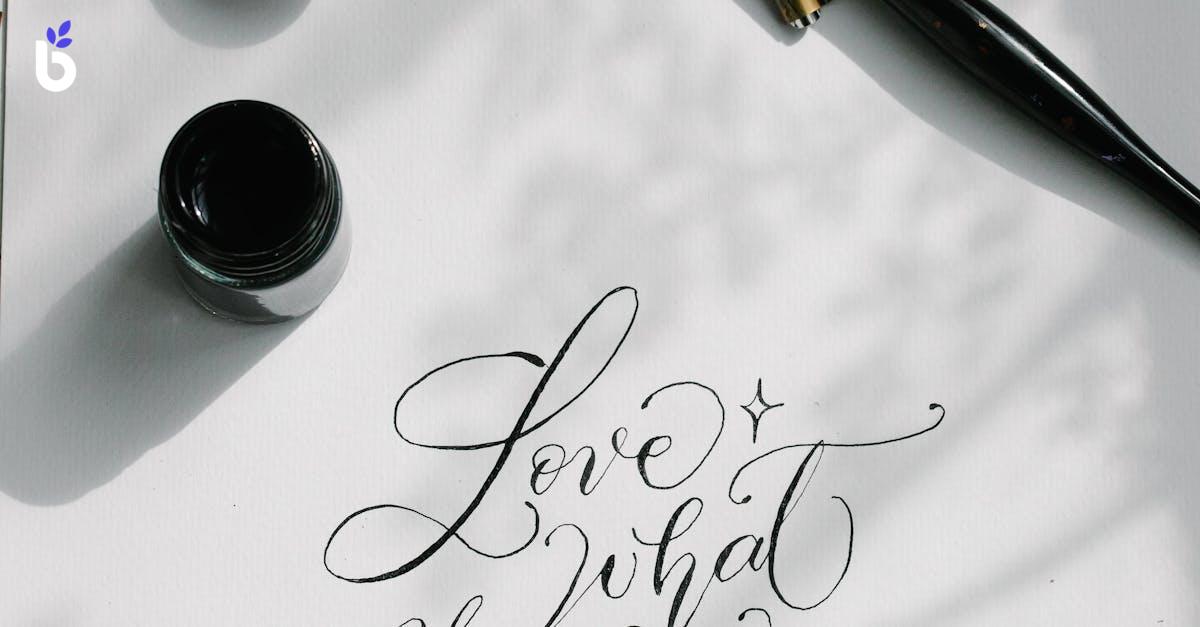 b
Love
what